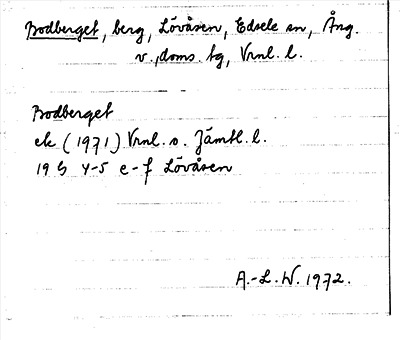 Bodberget, berg, Lövåsen, Edsele sn, Ång.
v., doms. tg, Vrnl. l.
Bodberget
ek (1971) Vrnl. o. Jämtl. l.
19 G 4-5 e-f Lövåsen
A.-L. W. 1972.